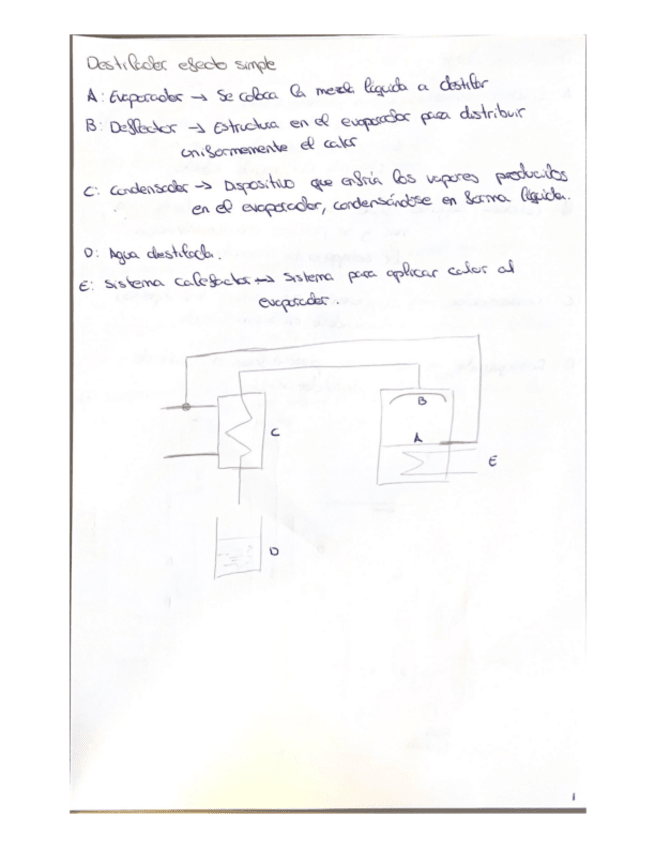 Destilador efecto simple
A: Evaporador → Se coloca la mezcla líquida a destilar
B: Deflector → Estructura en el evaporador para distribuir
uniformemente el calor
C: Condensador → Dispositivo que enfría los vapores producidos
en el evaporador, condensándose en forma líquida.
D: Agua destilada.
E: Sistema calefactor → Sistema para aplicar calor al
evaporador.
B
C
A
E
D
1